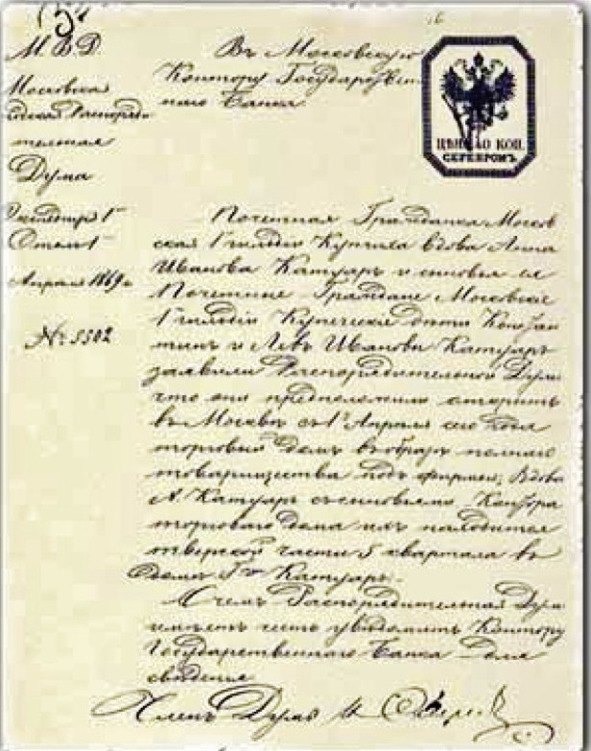 М. В. Д.
Московская
Распоряди
тельная
Дума
Отдел 1
Апреля 1869 г
№ 5502
Въ Московскую
Контору Государствен
наго Банка
ЦѢНА 40 КОП.
СЕРЕБРОМЪ
Почетная Гражданка Москов
ская 1 гильдіи Купчиха вдова Анна
Иванова Катуаръ и сыновья ее
Почетные Граждане Московскіе
1 гильдіи Купеческіе дѣти Констан
тинъ и Левъ Ивановы Катуаръ
заявили Распорядительной Думѣ
что они предположили открыть
въ Москвѣ съ 1го Апрѣля сего года
торговый домъ въ образѣ полнаго
товарищества подъ фирмою: Вдова
А. Катуаръ съ сыновьями, Контора
торговаго дома ихъ находится
тверской части 5 квартала въ
домѣ Гг Катуаръ.
О чемъ Распорядительная Дума
имѣетъ честь увѣдомить Контору
Государственнаго Банка для
свѣденія
Членъ Думы